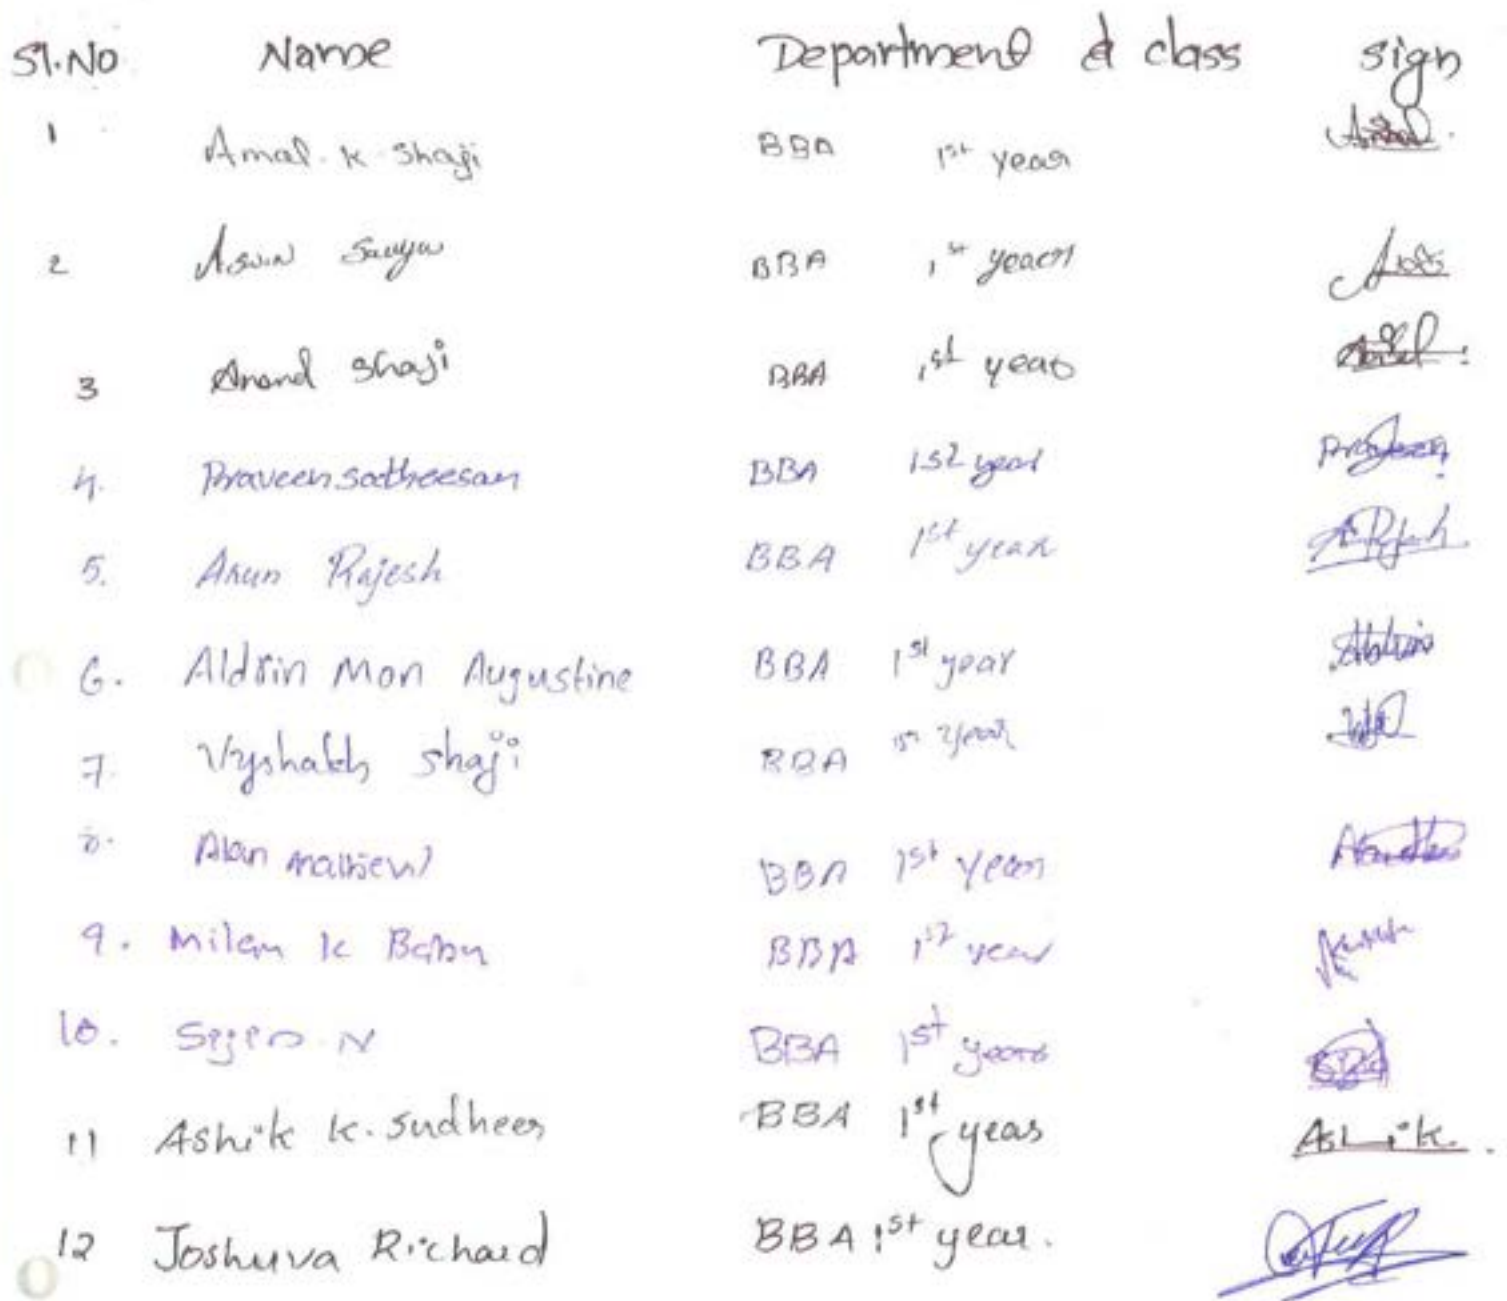 Sl.No Name Department & class Sign
1 Amal. K Shaji BBA 1st year Amal.
2 Aswin BBA 1st year
3 Anand Shaji BBA 1st year
4. Praveen satheesan BBA 1st year Praveen
5. Arun Rajesh BBA 1st year
6. Aldrin Mon Augustine BBA 1st year
7. Vyshakh Shaji BBA 1st year
8. Alan mathew BBA 1st year
9. Milan K Babu BBA 1st year
10. N BBA 1st year
11 Ashik K. Sudheer BBA 1st year Ashik.
12 Joshuva Richard BBA 1st year.